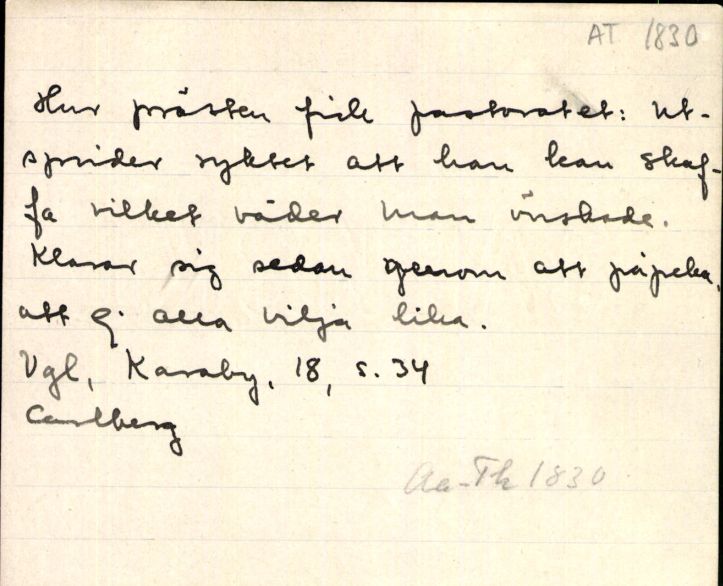 AT 1830
Hur prästen fick pastoratet: Ut-
sprider ryktet att han kan skaf-
fa vilket väder man önskade.
Klarar sig sedan genom att påpeka,
att ej alla vilja lika.
Vgl, Karaby, 18, s. 34
Carlberg
Aa-Th 1830